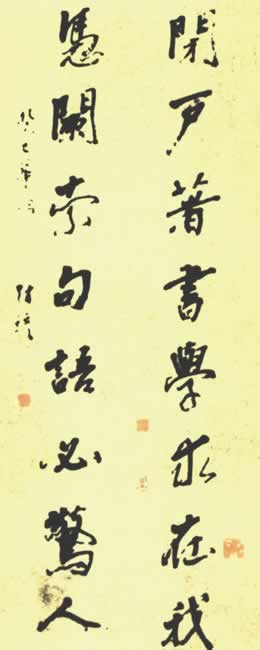 閉戶著書學求在我
憑闌索句語必驚人
癸巳